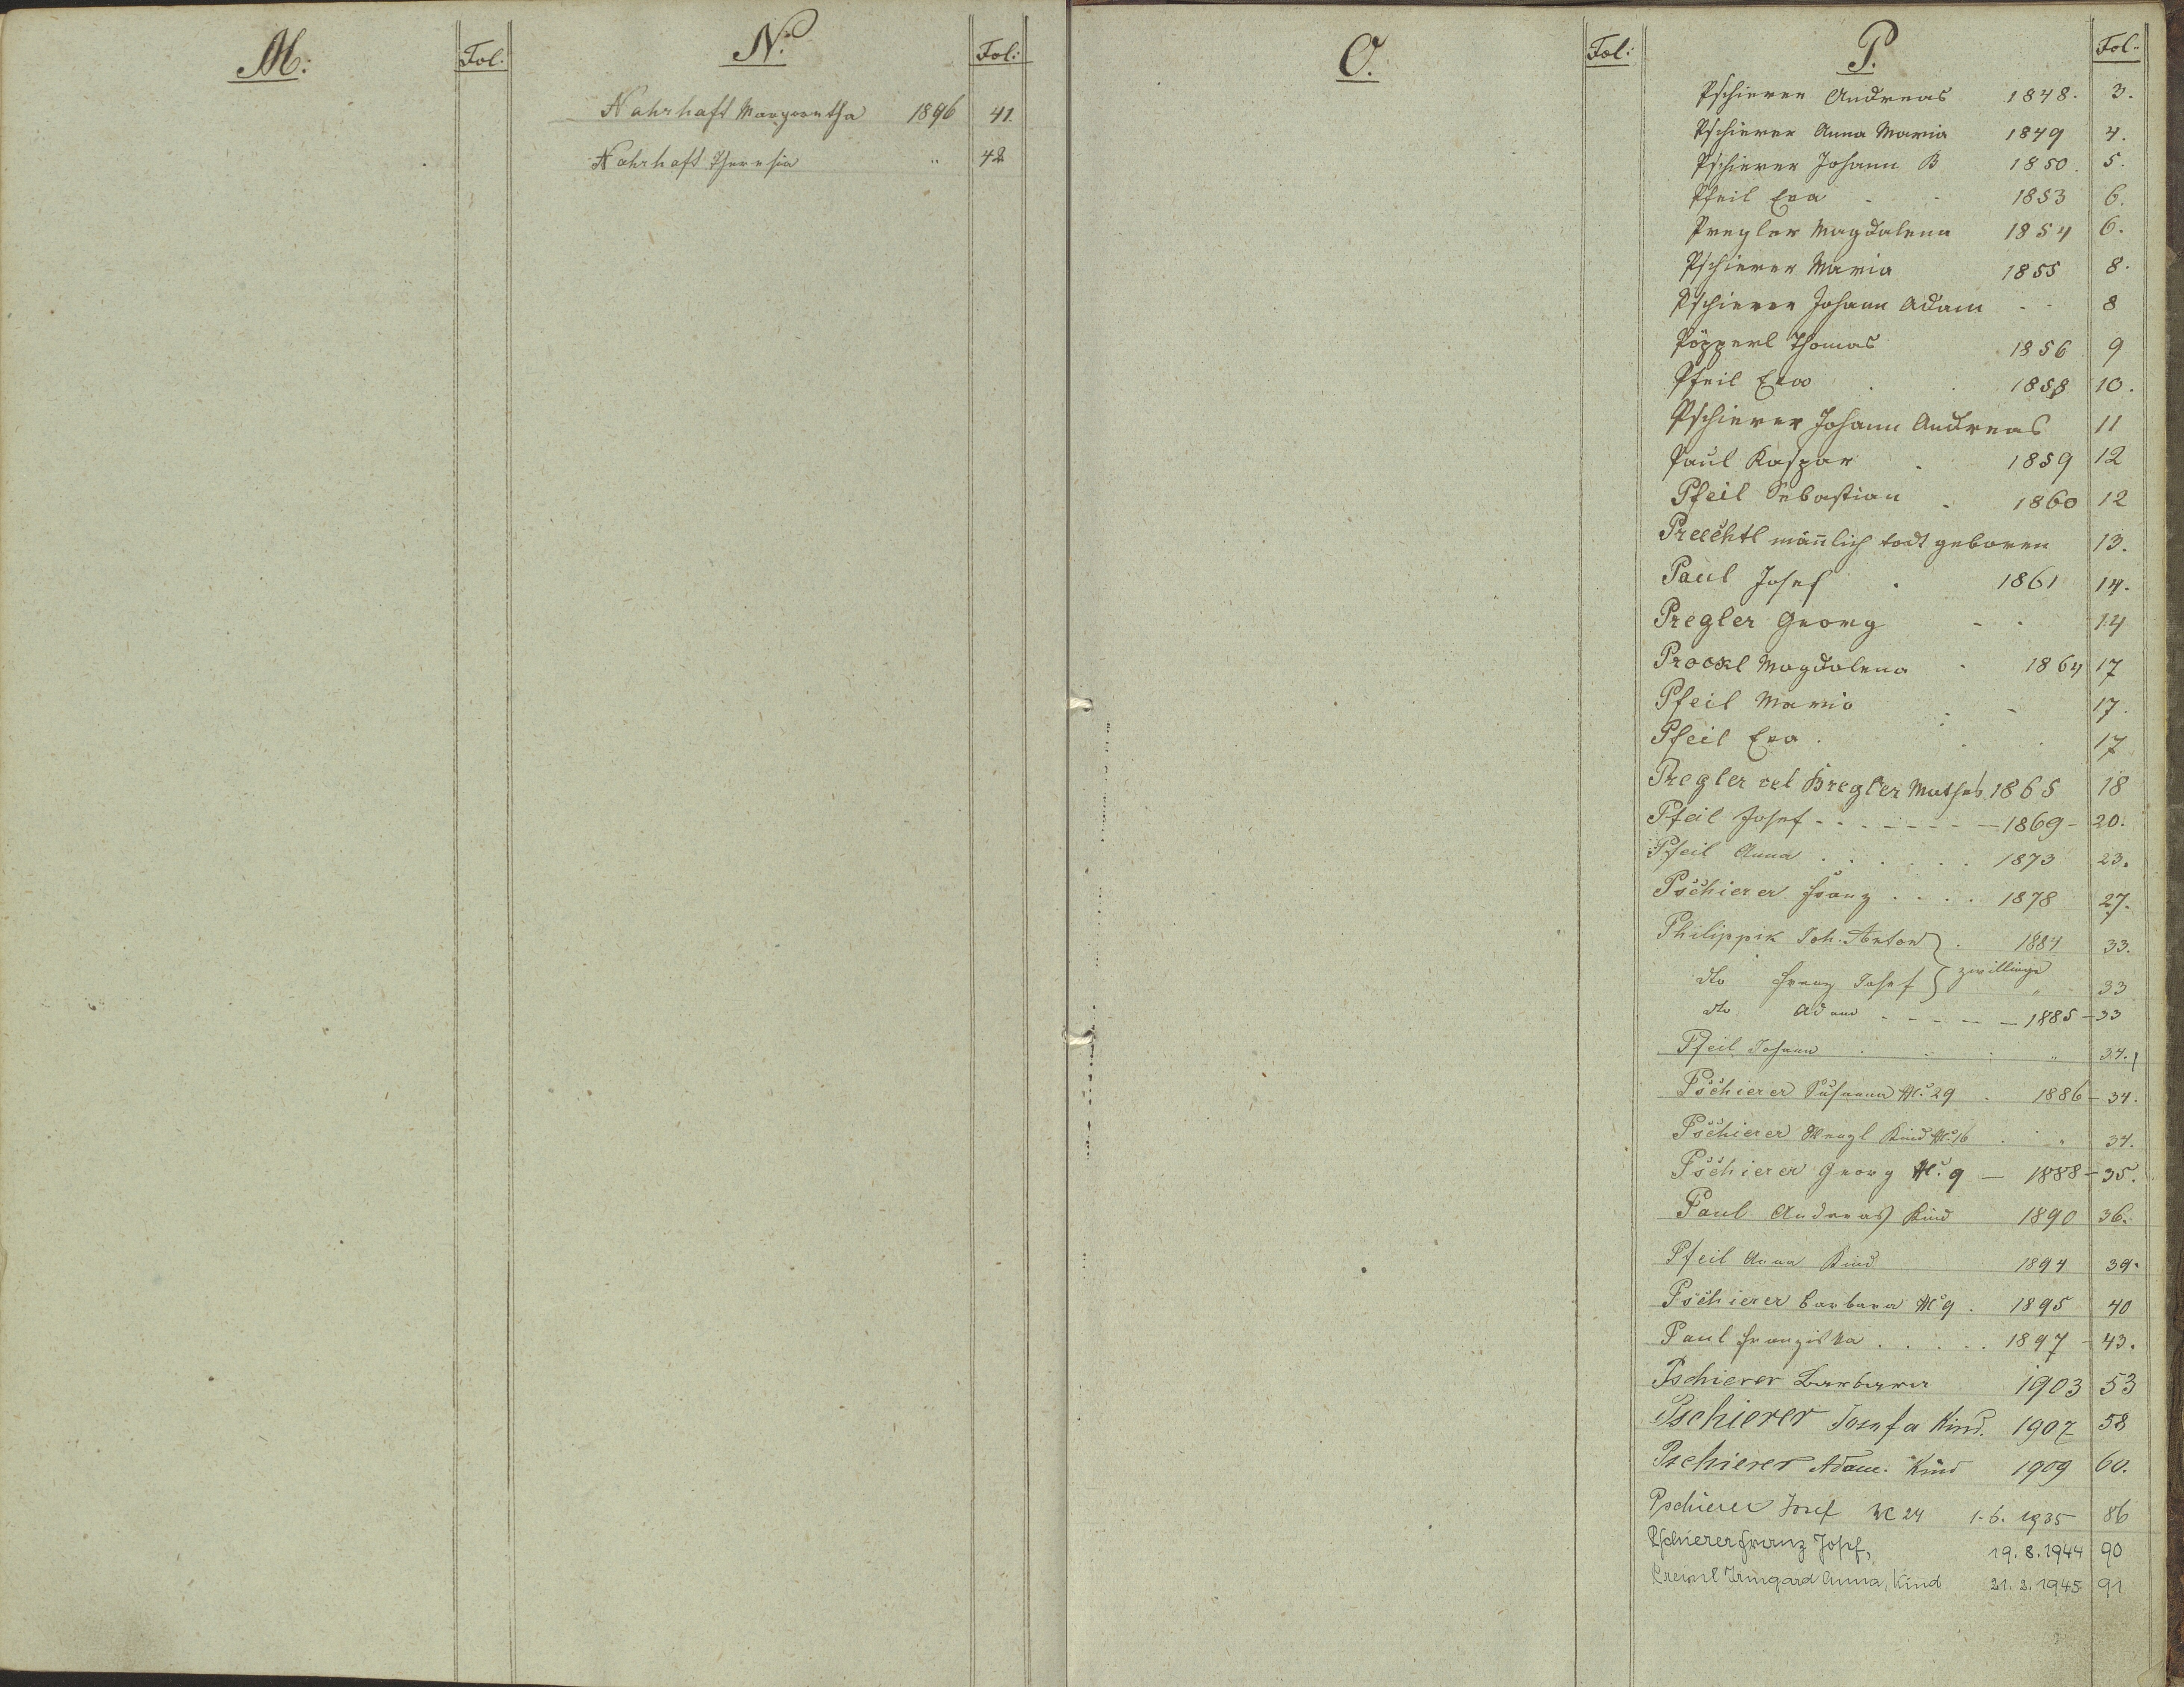 M: Fol. N. Fol:
Nahrhaft Margaretha 1896 41.
Nahrhaft Theresia " 42
O. Fol: P. Fol.
Pschierer Andreas 1848. 3.
Pschierer Anna Maria 1849 4.
Pschierer Johann B 1850. 5.
Pfeil Eva - - 1853 6.
Pregler Magdalena 1854 6.
Pschierer Maria 1855 8.
Pschierer Johann Adam - - 8
Pöpperl Thomas 1856 9
Pfeil Eva . . 1858 10.
Pschierer Johann Andreas 11
Paul Kaspar . 1859 12
Pfeil Sebastian . 1860 12
männlich todt geboren 13.
Paul Josef . 1861 14.
Pregler Georg - . 14
Prockl Magdalena . 1864 17
Pfeil Maria . - 17.
Pfeil Eva . . . 17
Pregler vel Bregler Mathes 1865 18
Pfeil Josef - - - - - - - 1869 - 20.
Pfeil Anna . . . . . . 1873 23.
Pschierer Franz . . . . 1878 27.
Philippik Joh. Anton } . 1884 33.
dto Franz Josef } zwillinge " 33
dto Adam - - - - - 1885 - 33
Pfeil Johann . . . " 34.
Pschierer Susanna N. 29 . 1886 - 34.
Pschierer Wenzl Kind N. 16 . . " 34.
Pschierer Georg N. 9 — 1888 - 35.
Paul Andreas Kind 1890 36.
Pfeil Anna Kind 1894 39.
Pschierer Barbara N. 9 . 1895 40
Paul Franziska . . . . . 1897 - 43.
Pschierer Barbara 1903 53
Pschierer Josefa Kind. 1907 58
Pschierer Adam. Kind 1909 60.
Pschierer Josef NC 24 1.6.1935 86
Pschierer Franz Josef, 19.8.1944 90
Irmgard Anna, Kind 21.2.1945 91